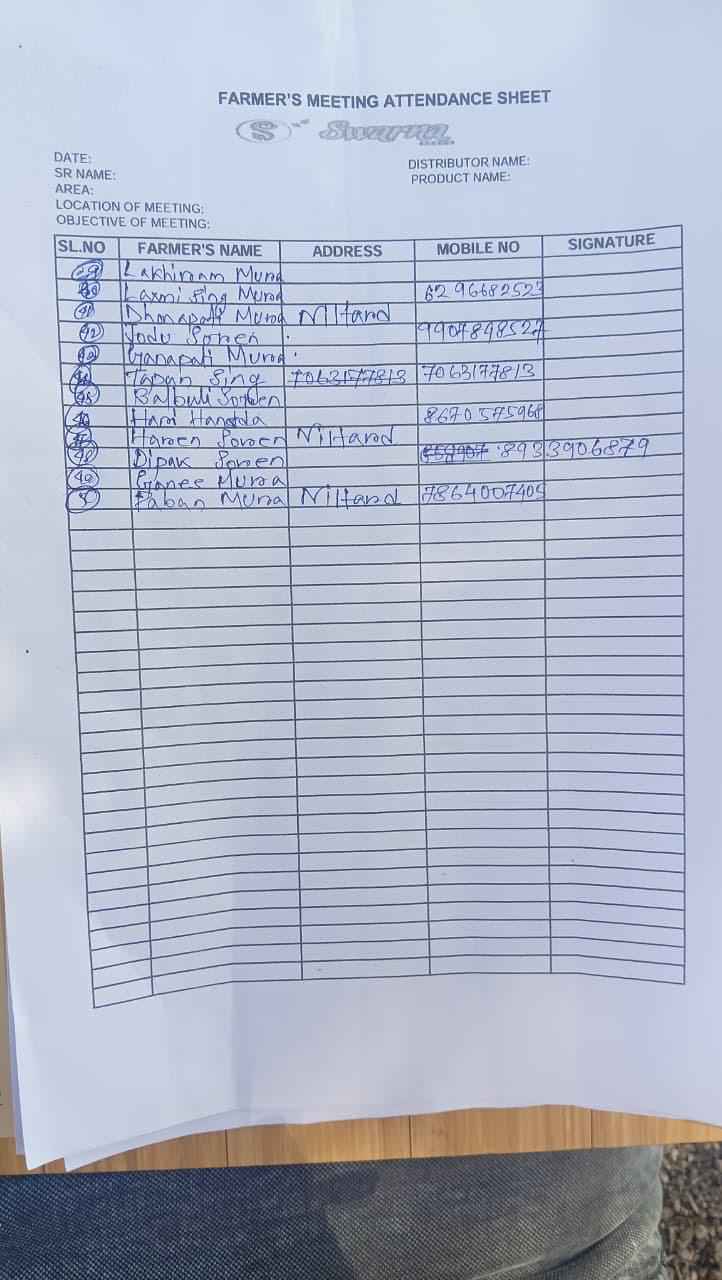 FARMER'S MEETING ATTENDANCE SHEET
S Swarna
DATE:
SR NAME:
AREA:
LOCATION OF MEETING:
OBJECTIVE OF MEETING:
DISTRIBUTOR NAME:
PRODUCT NAME:
SL.NO FARMER'S NAME ADDRESS MOBILE NO SIGNATURE
39 Lakhiram Mura
40 Laxmi Sing Mura 6296682523
41 Dhanapati Mura Niltard
42 Jodu Soren 9907898527
43 Ganapati Mura
44 Tapan Sing 7063177813 7063177813
45 Soren
46 Ham Hansda 8670575968
47 Haren Soren Niltard
48 Dipak Soren 8933906879
49 Ganes Mura
Paban Mura Niltard 7864007405